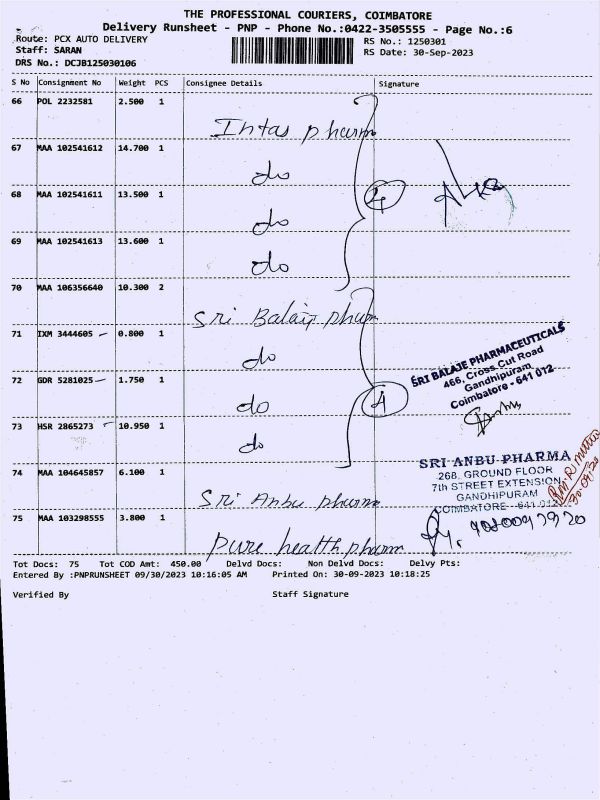 THE PROFESSIONAL COURIERS, COIMBATORE
Delivery Runsheet - PNP - Phone No.:0422-3505555 - Page No.:6
Route: PCX AUTO DELIVERY
RS No.: 1250301
Staff: SARAN
RS Date: 30-Sep-2023
DRS No.: DCJB125030106
S No Consignment No Weight PCS Consignee Details Signature
66 POL 2232581 2.500 1
Intas pharm
67 MAA 102541612 14.700 1
do
68 MAA 102541611 13.500 1
4
do
69 MAA 102541613 13.600 1
do
70 MAA 106356640 10.300 2
Sri Balaji pharm
71 IXM 3444605 0.800 1
do
SRI BALAJE PHARMACEUTICALS
466, Cross Cut Road
Gandhipuram
Coimbatore - 641 012
72 GDR 5281025 1.750 1
do
4
73 HSR 2865273 10.950 1
do
SRI ANBU PHARMA
268, GROUND FLOOR
7th STREET EXTENSION
GANDHIPURAM
COIMBATORE - 641 012
30.09.23
74 MAA 104645857 6.100 1
Sri Anbu pharma
75 MAA 103298555 3.800 1
Pure health pharm
Tot Docs: 75 Tot COD Amt: 450.00 Delvd Docs: Non Delvd Docs: Delvy Pts:
Entered By :PNPRUNSHEET 09/30/2023 10:16:05 AM Printed On: 30-09-2023 10:18:25
Verified By Staff Signature